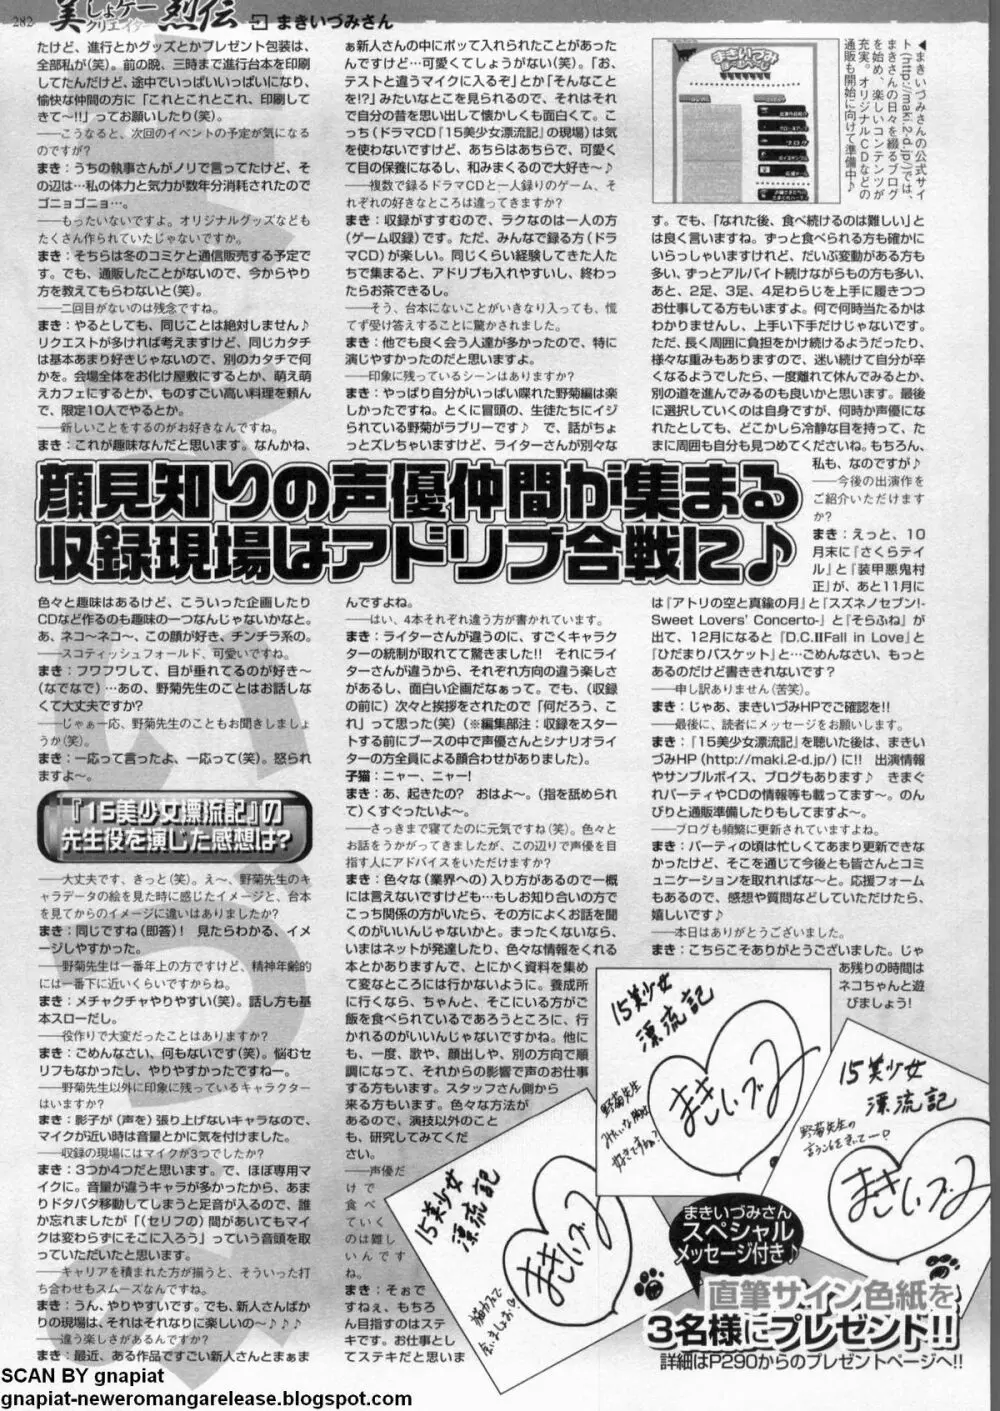 282
美しょゲークリエイター烈伝 まきいづみさん
たけど、進行とかグッズとかプレゼント包装は、
全部私が(笑)。前の晩、三時まで進行台本を印刷
してたんだけど、途中でいっぱいいっぱいになり、
愉快な仲間の方に「これとこれとこれ、印刷して
きて〜!!」ってお願いしたり(笑)。
──こうなると、次回のイベントの予定が気になる
のですが?
まき：うちの執事さんがノリで言ってたけど、そ
の辺は…私の体力と気力が数年分消耗されたので
ゴニョゴニョ…。
──もったいないですよ。オリジナルグッズなども
たくさん作られていたじゃないですか。
まき：そちらは冬のコミケと通信販売する予定で
す。でも、通販したことがないので、今からやり
方を教えてもらわないと(笑)。
──二回目がないのは残念ですね。
まき：やるとしても、同じことは絶対しません♪
リクエストが多ければ考えますけど、同じカタチ
は基本あまり好きじゃないので、別のカタチで何
かを。会場全体をお化け屋敷にするとか、萌え萌
えカフェにするとか、ものすごい高い料理を頼ん
で、限定10人でやるとか。
──新しいことをするのがお好きなんですね。
まき：これが趣味なんだと思います。なんかね、
ぁ新人さんの中にポッて入れられたことがあった
んですけど…可愛くてしょうがない(笑)。「お、
テストと違うマイクに入るぞ」とか「そんなこと
を!?」みたいなとこを見られるので、それはそれ
で自分の昔を思い出して懐かしくも面白くて。こ
っち(ドラマCD『15美少女漂流記』の現場)は気
を使わないですけど、あちらはあちらで、可愛く
て目の保養になるし、和みまくるので大好き〜♪
──複数で録るドラマCDと一人録りのゲーム、そ
れぞれの好きなところは違ってきますか?
まき：収録がすすむので、ラクなのは一人の方
(ゲーム収録)です。ただ、みんなで録る方(ドラ
マCD)が楽しい。同じくらい経験してきた人た
ちで集まると、アドリブも入れやすいし、終わっ
たらお茶できるし。
──そう、台本にないことがいきなり入っても、慌
てず受け答えすることに驚かされました。
まき：他でも良く会う人達が多かったので、特に
演じやすかったのだと思いますよ。
──印象に残っているシーンはありますか?
まき：やっぱり自分がいっぱい喋れた野菊編は楽
しかったですね。とくに冒頭の、生徒たちにイジ
られている野菊がラブリーです♪ で、話がちょ
っとズレちゃいますけど、ライターさんが別々な
◀まきいづみさんの公式サイ
ト(http://maki.2-d.jp/)では、
まきさんの日々を綴るブログ
を始め、楽しいコンテンツが
充実。オリジナルCDなどの
通販も開始に向けて準備中♪
す。でも、「なれた後、食べ続けるのは難しい」と
は良く言いますね。ずっと食べられる方も確かに
いらっしゃいますけれど、だいぶ変動がある方も
多い、ずっとアルバイト続けながらもの方も多い、
あと、2足、3足、4足わらじを上手に履きつつ
お仕事してる方もいますよ。何で何時当たるかは
わかりませんし、上手い下手だけじゃないです。
ただ、長く周囲に負担をかけ続けるようだったり、
様々な重みもありますので、迷い続けて自分が辛
くなるようでしたら、一度離れて休んでみるとか、
別の道を進んでみるのも良いかと思います。最後
に選択していくのは自身ですが、何時か声優にな
れたとしても、どこかしら冷静な目を持って、た
まに周囲も自分も見つめてくださいね。もちろん、
私も、なのですが♪
──今後の出演作を
ご紹介いただけます
か?
まき：えっと、10
月末に『さくらテイ
ル』と『装甲悪鬼村
正』が、あと11月に
は『アトリの空と真鍮の月』と『スズネノセブン!-
Sweet Lovers' Concerto-』と『そらふね』が
出て、12月になると『D.C.ⅡFall in Love』と
『ひだまりバスケット』と…ごめんなさい、もっと
あるのだけど書ききれないです?
──申し訳ありません(苦笑)。
まき：じゃあ、まきいづみHPでご確認を!!
──最後に、読者にメッセージをお願いします。
まき：『15美少女漂流記』を聴いた後は、まきい
づみHP(http://maki.2-d.jp/)に!! 出演情報
やサンプルボイス、ブログもあります♪ きまぐ
れパーティやCDの情報等も載ってます〜。のん
びりと通販準備したりもしてますよ〜。
──ブログも頻繁に更新されていますよね。
まき：パーティの頃は忙しくてあまり更新できな
かったけど、そこを通じて今後とも皆さんとコミ
ュニケーションを取れればな〜と。応援フォーム
もあるので、感想や質問などしていただけたら、
嬉しいです♪
──本日はありがとうございました。
まき：こちらこそありがとうございました。じゃ
あ残りの時間は
ネコちゃんと遊
びましょう!
顔見知りの声優仲間が集まる
収録現場はアドリブ合戦に♪
色々と趣味はあるけど、こういった企画したり
CDなど作るのも趣味の一つなんじゃないかなと。
あ、ネコ〜ネコ〜、この顔が好き、チンチラ系の。
──スコティッシュフォールド、可愛いですね。
まき：フワフワして、目が垂れてるのが好き〜
(なでなで)…あの、野菊先生のことはお話しな
くて大丈夫ですか?
──じゃぁ一応、野菊先生のこともお聞きしましょ
うか(笑)。
まき：一応って言ったよ、一応って(笑)。怒られ
ますよ〜。
『15美少女漂流記』の
先生役を演じた感想は?
──大丈夫です、きっと(笑)。え〜、野菊先生のキ
ャラデータの絵を見た時に感じたイメージと、台本
を見てからのイメージに違いはありましたか?
まき：同じですね(即答)! 見たらわかる、イメ
ージしやすかった。
──野菊先生は一番年上の方ですけど、精神年齢的
には一番下に近いくらいですからね。
まき：メチャクチャやりやすい(笑)。話し方も基
本スローだし。
──役作りで大変だったことはありますか?
まき：ごめんなさい、何もないです(笑)。悩むセ
リフもなかったし、やりやすかったですねー。
──野菊先生以外に印象に残っているキャラクター
はいますか?
まき：影子が(声を)張り上げないキャラなので、
マイクが近い時は音量とかに気を付けました。
──収録の現場にはマイクが3つでしたか?
まき：3つか4つだと思います。で、ほぼ専用マ
イクに。音量が違うキャラが多かったから、あま
りドタバタ移動してしまうと足音が入るので、誰
か忘れましたが「(セリフの)間があいてもマイク
は変わらずにそこに入ろう」っていう音頭を取
っていただいたと思います。
──キャリアを積まれた方が揃うと、そういった打
ち合わせもスムーズなんですね。
まき：うん、やりやすいです。でも、新人さんばか
りの現場は、それはそれなりに楽しいの〜♪♪♪
──違う楽しさがあるんですか?
まき：最近、ある作品ですごい新人さんとまぁま
んですよね。
──はい、4本それぞれ違う方が書かれています。
まき：ライターさんが違うのに、すごくキャラク
ターの統制が取れてて驚きました!! それにライ
ターさんが違うから、それぞれ方向の違う楽しさ
があるし、面白い企画だなぁって。でも、(収録
の前に)次々と挨拶をされたので「何だろう、こ
れ」って思った(笑)(※編集部注：収録をスター
トする前にブースの中で声優さんとシナリオライタ
ーの方全員による顔合わせがありました)。
子猫：ニャー、ニャー!
まき：あ、起きたの? おはよ〜。(指を舐められ
て)くすぐったいよ〜。
──さっきまで寝てたのに元気ですね(笑)。色々と
お話をうかがってきましたが、この辺りで声優を目
指す人にアドバイスをいただけますか?
まき：色々な(業界への)入り方があるので一概
には言えないですけども…もしお知り合いの方で
こっち関係の方がいたら、その方によくお話を聞
くのがいいんじゃないかなと。まったくないなら、
いまはネットが発達したり、色々な情報をくれる
本とかありますんで、とにかく資料を集め
て変なところには行かないように。養成所
に行くなら、ちゃんと、そこにいる方がご
飯を食べられているであろうところに、行
かれるのがいいんじゃないですかね。他に
も、一度、歌や、顔出しや、別の方向で順
調になって、それからの影響で声のお仕事
する方もいます。スタッフさん側から
来る方もいます。色々な方法が
あるので、演技以外のこと
も、研究してみてくだ
さい。
──声優だ
けで
食べ
ていく
のは難し
いんです
ね。
まき：そぉで
すねぇ、もちろ
ん目指すのはステ
キです。お仕事とし
てステキだと思いま
15美少女
漂流記
まきいづみ
野菊先生
みたいな胸は
好きですか?
15美少女
漂流記
まきいづみ
野菊先生の
15美少女
漂流記
まきいづみ
まきいづみさん
スペシャル
メッセージ付き♪
直筆サイン色紙を
3名様にプレゼント!!
詳細はP290からのプレゼントページへ!!
SCAN BY gnapiat
gnapiat-neweromangarelease.blogspot.com